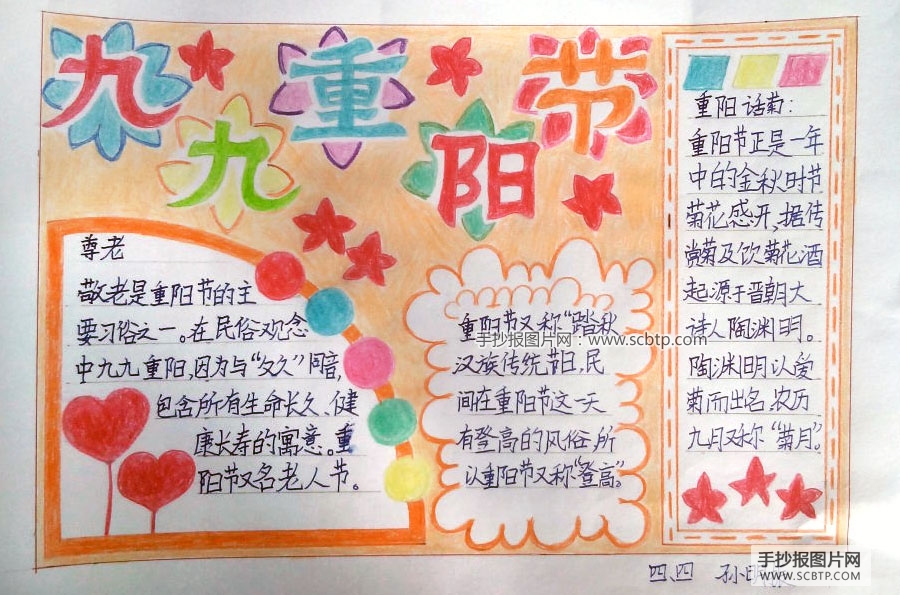 九九重阳节
尊老
敬老是重阳节的主
要习俗之一。在民俗观念
中九九重阳,因为与“久久”同音,
包含所有生命长久、健
康长寿的寓意。重
阳节又名老人节。
重阳节又称“踏秋
汉族传统节日,民
间在重阳节这一天
有登高的风俗,所
以重阳节又称“登高”。
重阳话菊:
重阳节正是一年
中的金秋时节
菊花盛开,据传
赏菊及饮菊花酒
起源于晋朝大
诗人陶渊明。
陶渊明以爱
菊而出名,农历
九月又称“菊月”。
手抄报图片网:www.scbtp.com
四、四 孙
手抄报图片网
WWW.SCBTP.COM